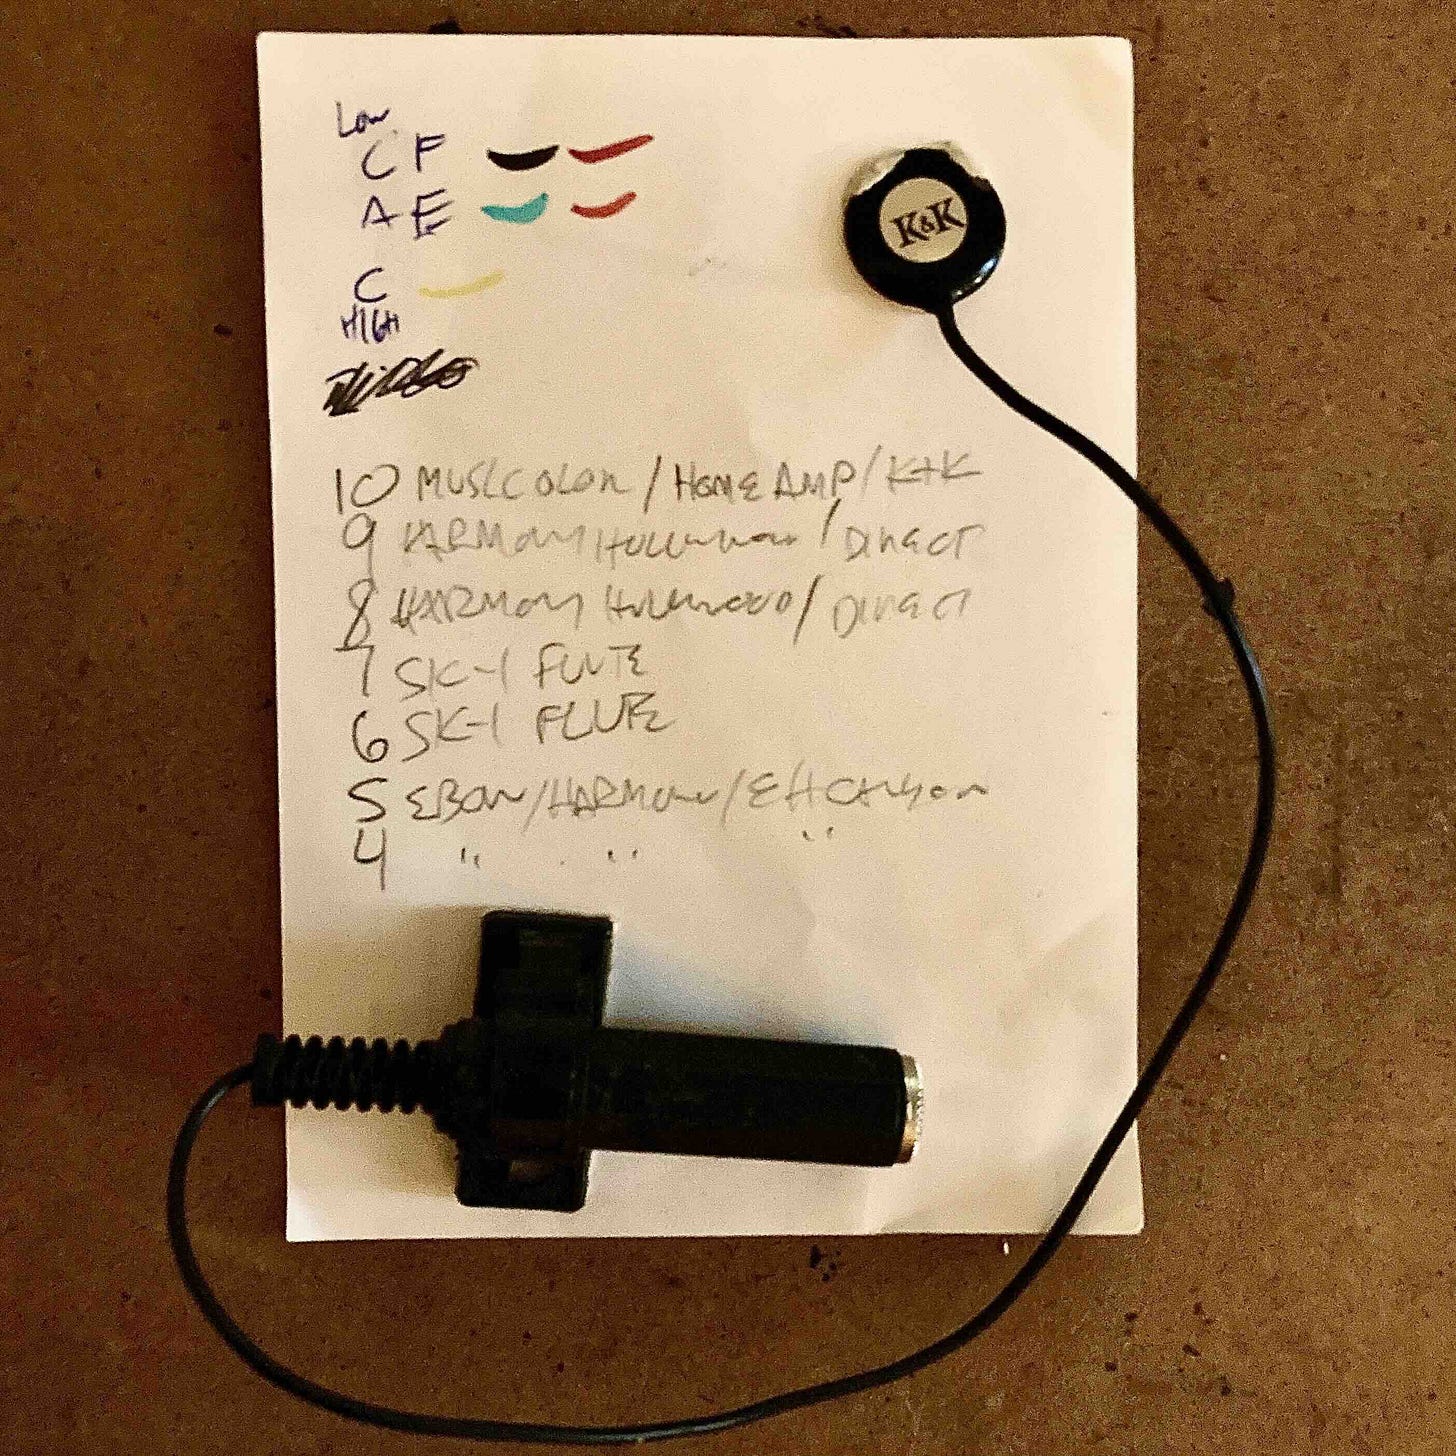 Low
C F
A E
K&K
C
HIGH
10 MUSICOLOR / HOME AMP / K+K
9 HARMONY HOLLYWOOD / DIRECT
8 HARMONY HOLLYWOOD / DIRECT
7 SK-1 FLUTE
6 SK-1 FLUTE
5 EBOW / HARMONY /
4 " " "